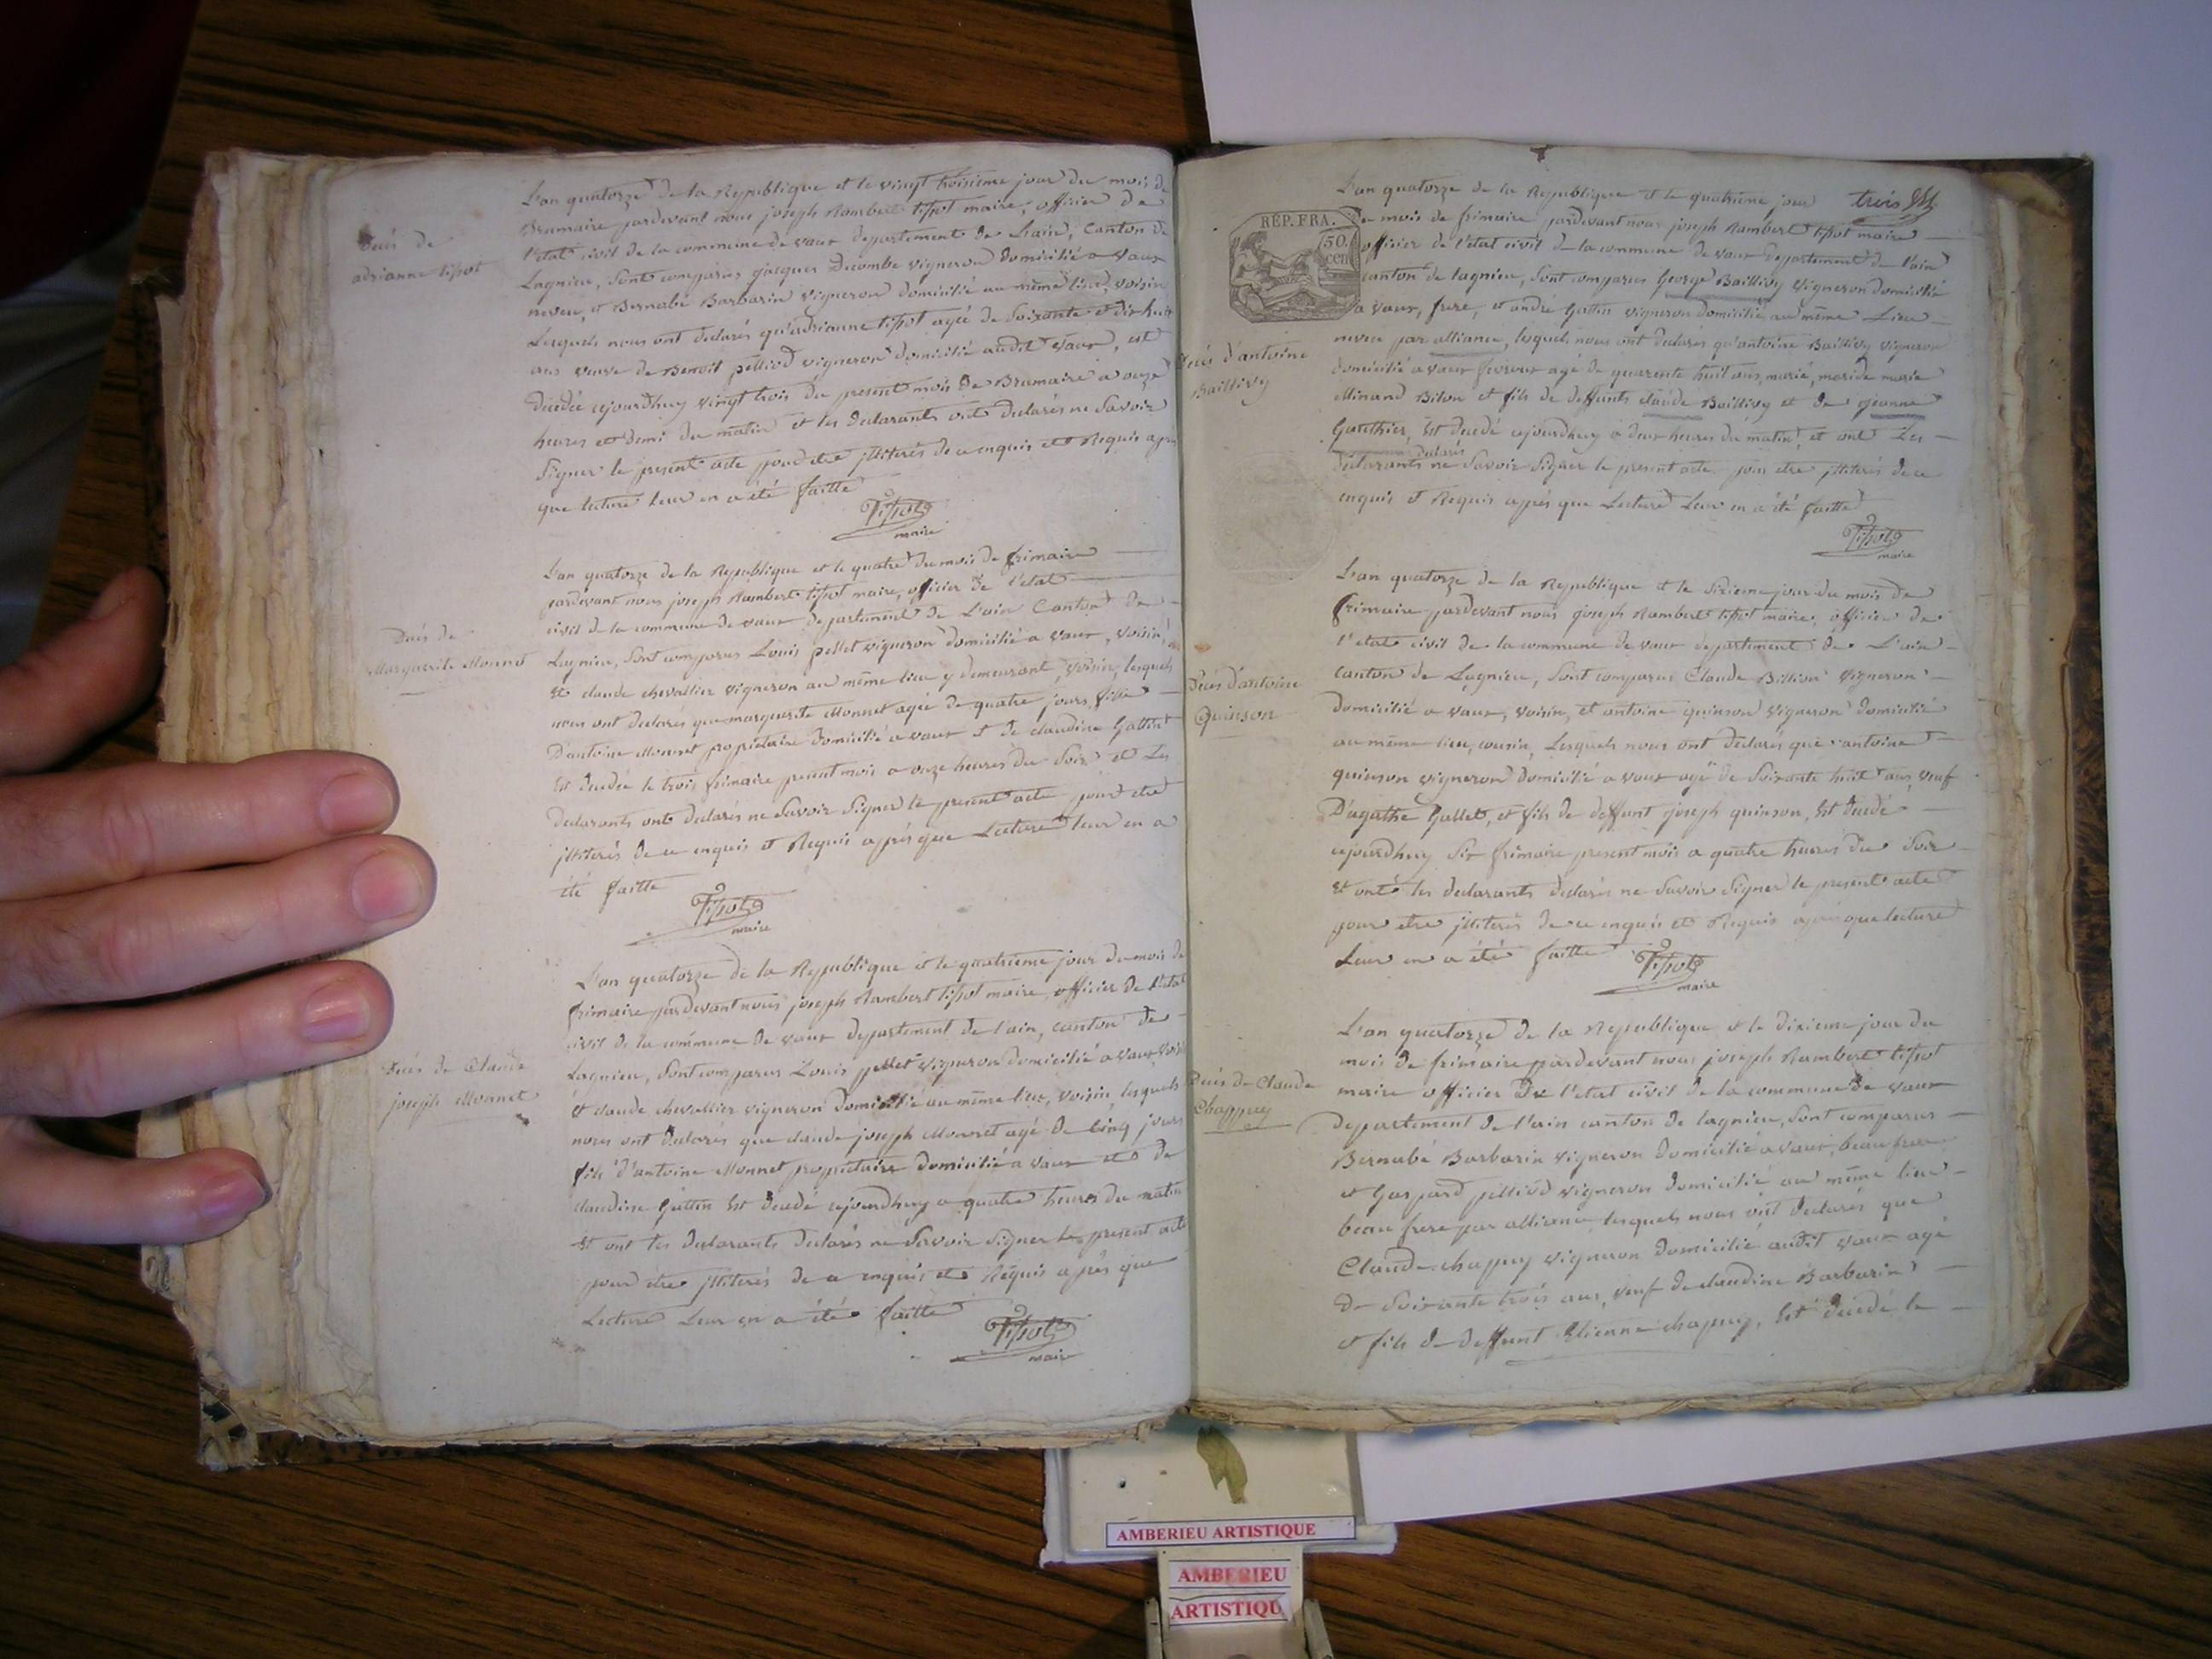 Décès de
adrianne tissot
L'an quatorze de la Republique et le vingt troisieme jour du mois de
Brumaire pardevant nous joseph Rambert tissot maire, officier de
l'etat civil de la commune de vaux departement de L'ain, Canton de
Lagnieu, Sont comparus jacques Decombe vigneron domicilié a vaux
neveu, et Bernabé Barbarin vigneron domicilié au même lieu, voisin
Lesquels nous ont declarés qu'adrianne tissot agée de Soixante et dix huit
ans veuve de Benoit pelliod vigneron domicilié audit vaux, est
decedée cejourdhuy vingt trois du present mois de Brumaire a onze
heures et demi du matin et les declarants ont declarés ne Savoir
Signer le present acte pour etre jlliterés de ce enquis et Requis après
que lecture leur en a été faitte
Tissot
maire
Décès de
Marguerite Monnet
L'an quatorze de la Republique et le quatre du mois de frimaire
pardevant nous joseph Rambert tissot maire, officier de l'etat
civil de la commune de vaux departement de L'ain Canton de
Lagnieu, Sont comparus Louis pellet vigneron domicilié a vaux, voisin
et claude chevallier vigneron au même lieu y demeurant, voisin, lesquels
nous ont declarés que marguerite Monnet agée de quatre jours, fille
D'antoine Monnet propriétaire domicilié a vaux et de claudine Gattin
Est decedée le trois frimaire present mois a onze heures du Soir et Les
declarants ont declarés ne Savoir Signer le present acte pour etre
jlliterés de ce enquis et Requis après que Lecture leur en a
été faitte
Tissot
maire
Décès de Claude
joseph Monnet
L'an quatorze de la Republique et le quatrieme jour du mois de
frimaire pardevant nous joseph Rambert tissot maire, officier de l'etat
civil de la commune de vaux departement de l'ain, canton de
Lagnieu, Sont comparus Louis pellet vigneron domicilié a vaux, voisin
et claude chevallier vigneron domicilié au même lieu, voisin, lesquels
nous ont declarés que claude joseph Monnet agé de cinq jours
fils d'antoine Monnet propriétaire domicilié a vaux et de
claudine Gattin Est decedé cejourdhuy a quatre heures du matin
Et ont les declarants declarés ne Savoir Signer le present acte
pour etre jlliterés de ce enquis et Requis après que
Lecture Leur en a été faitte
Tissot
maire
trois
RÉP. FRA.
50.
cen
Décès d'antoine
Baillivy
L'an quatorze de la Republique et le quatrieme jour
de mois de frimaire pardevant nous joseph Rambert tissot maire
officier de l'etat civil de la commune de vaux departement de l'ain
canton de lagnieu, Sont comparus George Baillivy vigneron domicilié
a vaux, frere, et andré Gattin vigneron domicilié au même Lieu
neveu par alliance, lesquels nous ont declarés qu'antoine Baillivy vigneron
domicilié a vaux agé de quarente huit ans, marié, mari de marie
et fils de deffunts claude Baillivy et de jeanne
Gauthier, Est decedé cejourdhuy a deux heures du matin, et ont Les
declarés
declarants ne Savoir Signer le present acte pour etre jlliterés de ce
enquis et Requis après que Lecture Leur en a été faitte
Tissot
maire
Décès d'antoine
Quinson
L'an quatorze de la Republique et le Sixieme jour du mois de
frimaire pardevant nous joseph Rambert tissot maire, officier de
l'etat civil de la commune de vaux departement de L'ain
canton de Lagnieu, Sont comparus Claude Billion vigneron
domicilié a vaux, voisin, et antoine quinson vigneron domicilié
au même lieu, cousin, Lesquels nous ont declarés que antoine
quinson vigneron domicilié a vaux agé de Soixante huit ans, veuf
D'agathe Gallet, et fils de deffunt joseph quinson, Est decedé
cejourdhuy Six frimaire present mois a quatre heures du Soir
et ont les declarants declarés ne Savoir Signer le present acte
pour etre jlliterés de ce enquis et Requis après que lecture
Leur en a été faitte
Tissot
maire
Décès de Claude
Chappuy
L'an quatorze de la Republique et le dixieme jour du
mois de frimaire pardevant nous joseph Rambert tissot
maire officier de l'etat civil de la commune de vaux
departement de l'ain canton de lagnieu, Sont comparus
Bernabé Barbarin vigneron domicilié a vaux, beau frere
et Gaspard pelliod vigneron domicilié au même lieu
beau frere par alliance, lesquels nous ont declarés que
Claude chappuy vigneron domicilié audit vaux agé
de Soixante trois ans, veuf de claudine Barbarin
et fils de deffunt Etienne chapuy, Est decedé le
AMBERIEU ARTISTIQUE
AMBERIEU
ARTISTIQU